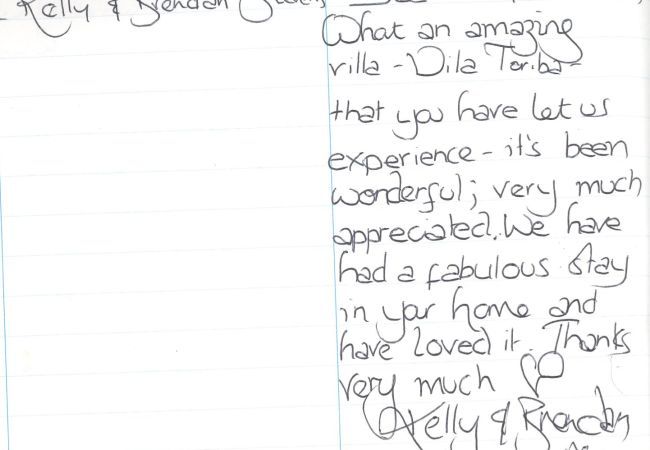 Kelly & Brendan
What an amazing
villa - Vila Toriba -
that you have let us
experience - it's been
wonderful; very much
appreciated. We have
had a fabulous stay
in your home and
have loved it. Thanks
very much
Kelly & Brendan